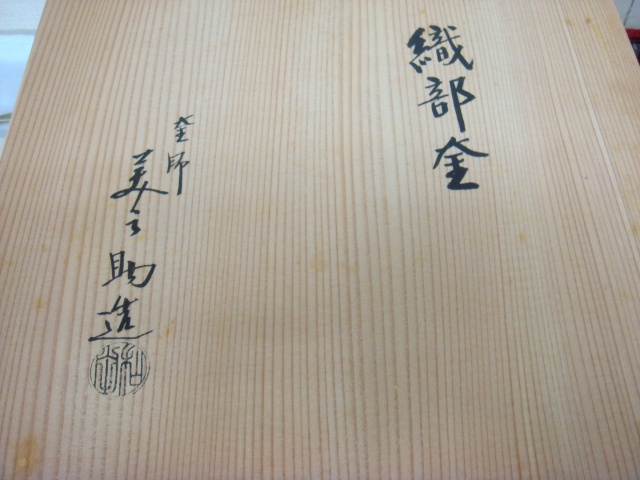 織部釜
釜師
美之助造